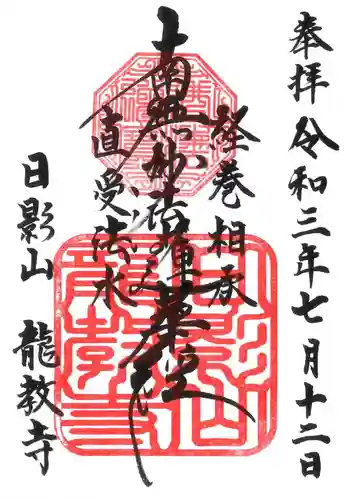 奉拝 令和三年七月十二日
経巻相承
南無妙法蓮華経
直受法水
日影山 龍教寺